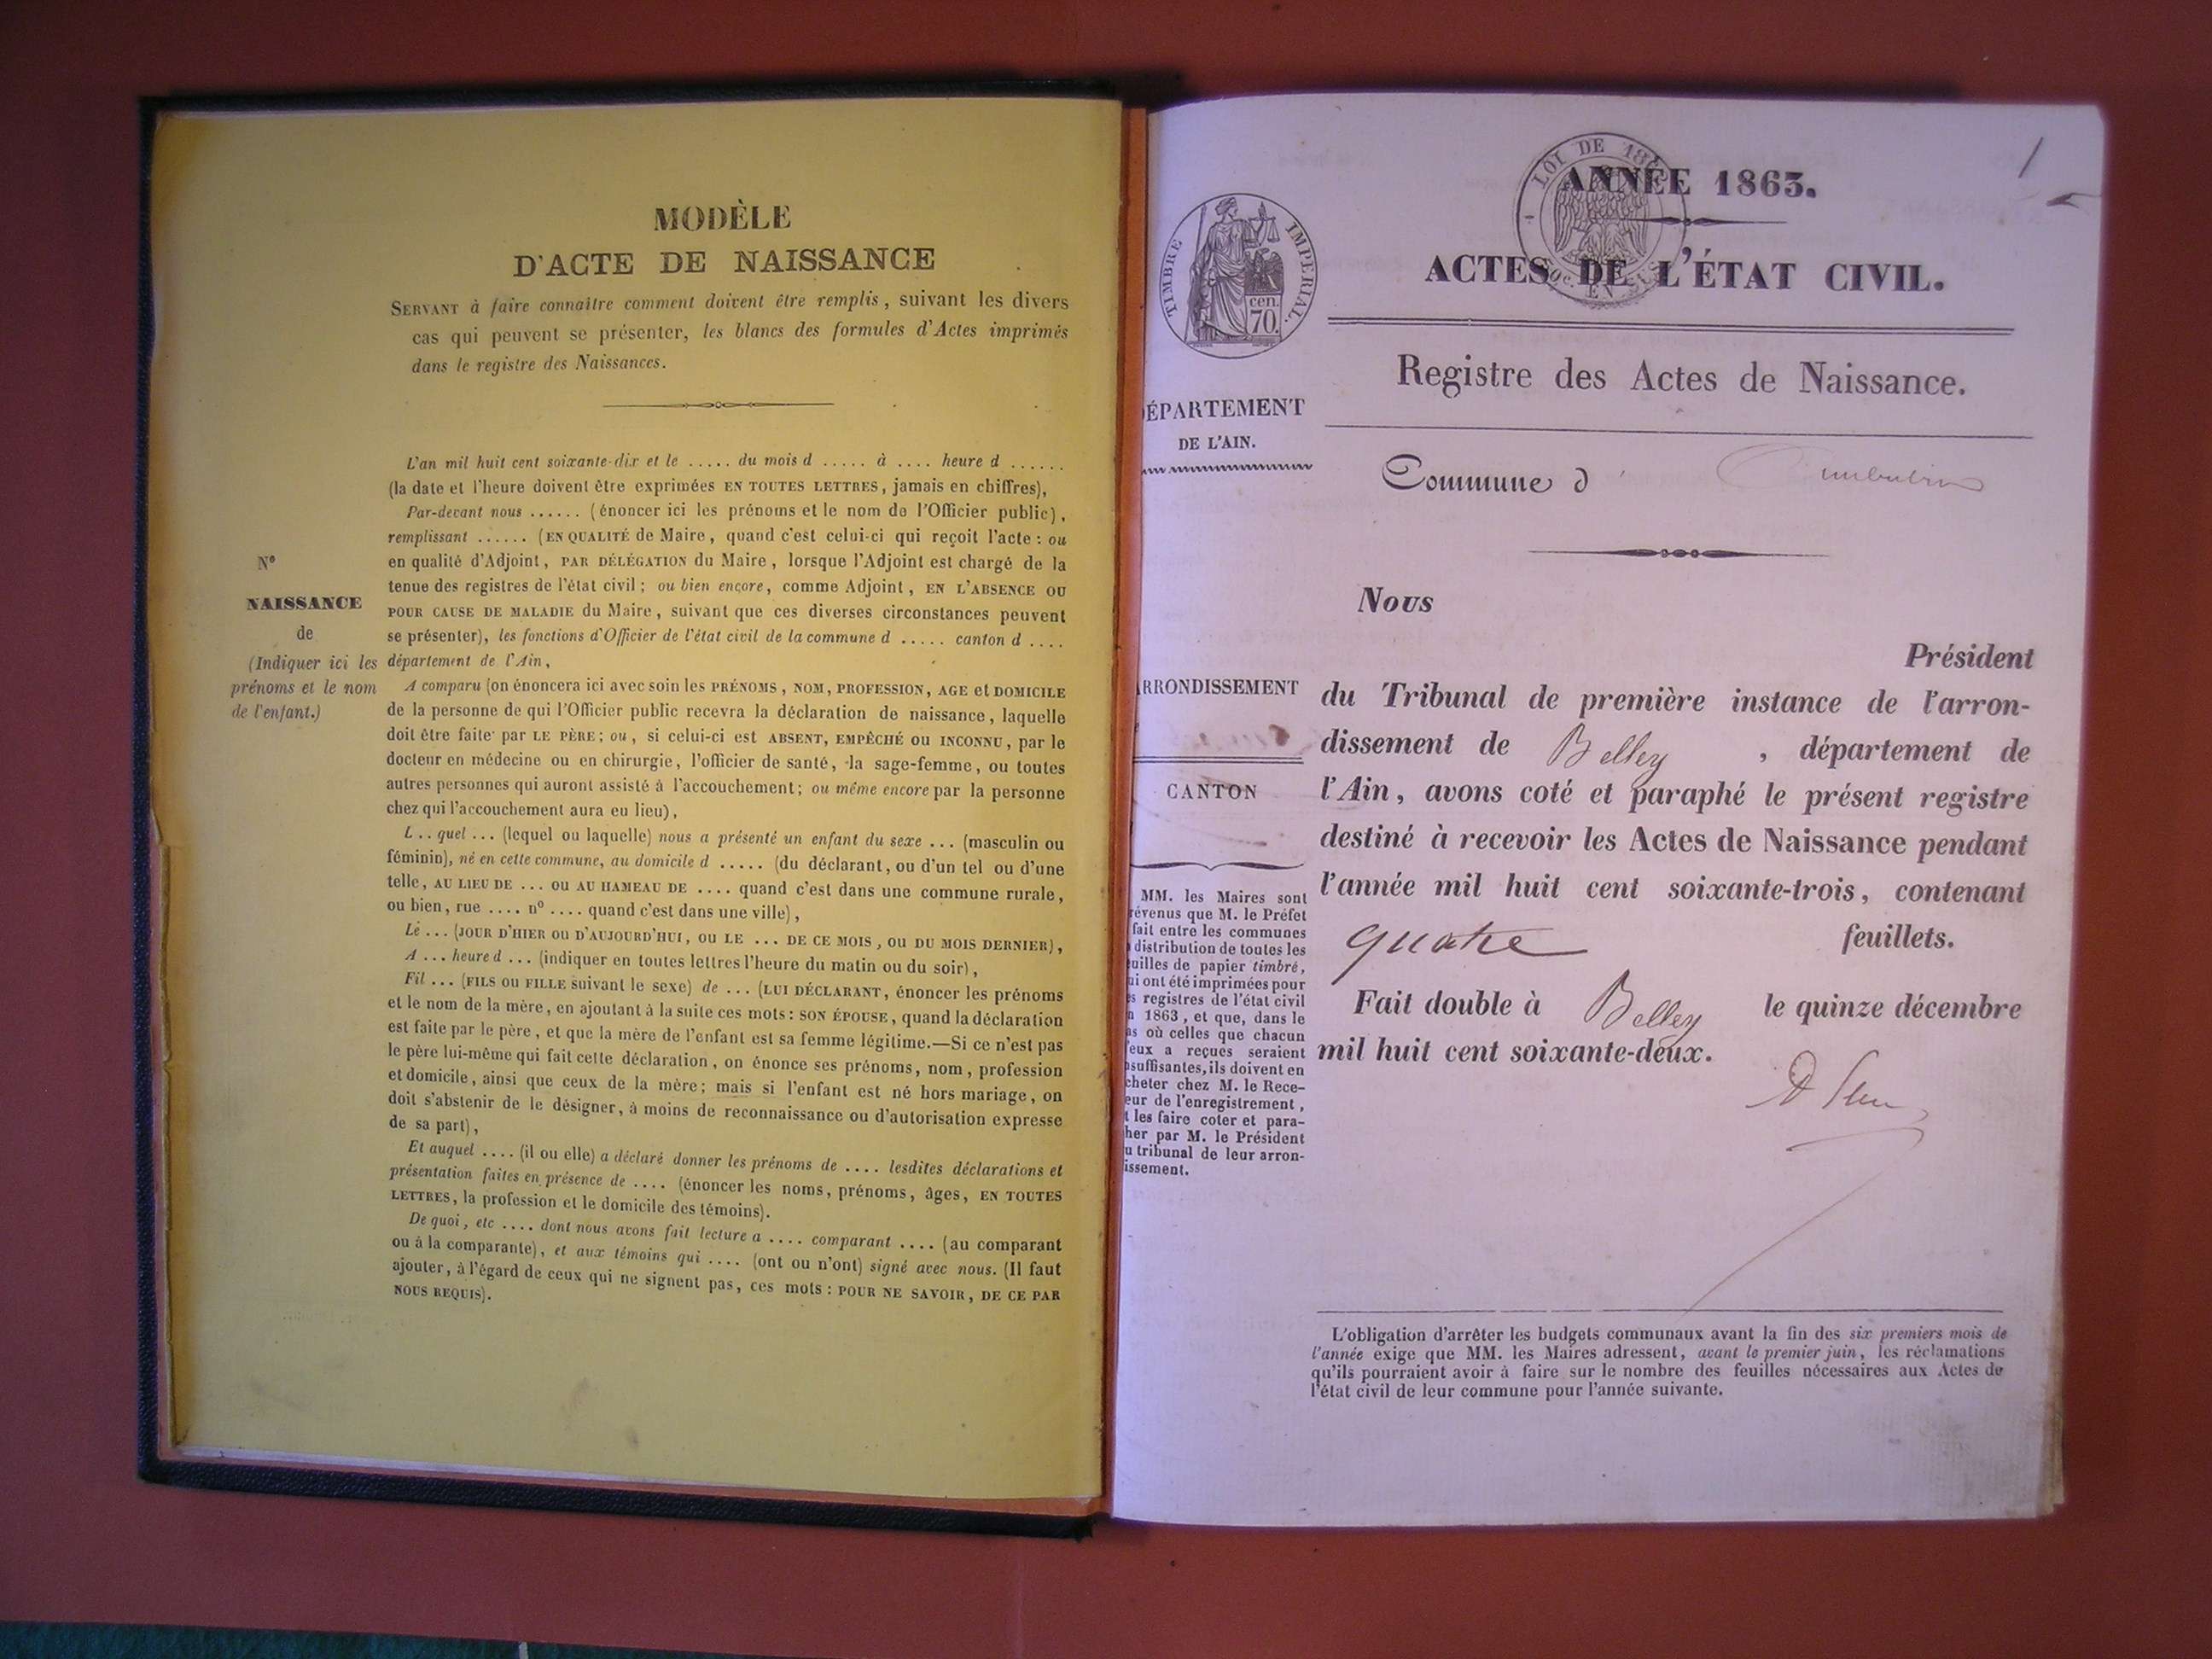 MODÈLE
D'ACTE DE NAISSANCE
SERVANT à faire connaître comment doivent être remplis, suivant les divers
cas qui peuvent se présenter, les blancs des formules d'Actes imprimés
dans le registre des Naissances.
L'an mil huit cent soixante-dix et le ..... du mois d ..... à .... heure d ......
(la date et l'heure doivent être exprimées EN TOUTES LETTRES, jamais en chiffres),
Par-devant nous ...... (énoncer ici les prénoms et le nom de l'Officier public),
remplissant ...... (EN QUALITÉ de Maire, quand c'est celui-ci qui reçoit l'acte : ou
en qualité d'Adjoint, PAR DÉLÉGATION du Maire, lorsque l'Adjoint est chargé de la
tenue des registres de l'état civil ; ou bien encore, comme Adjoint, EN L'ABSENCE OU
POUR CAUSE DE MALADIE du Maire, suivant que ces diverses circonstances peuvent
se présenter), les fonctions d'Officier de l'état civil de la commune d ..... canton d ....
département de l'Ain,
N°
NAISSANCE
de
(Indiquer ici les
prénoms et le nom
de l'enfant.)
A comparu (on énoncera ici avec soin les PRÉNOMS, NOM, PROFESSION, AGE et DOMICILE
de la personne de qui l'Officier public recevra la déclaration de naissance, laquelle
doit être faite par LE PÈRE ; ou, si celui-ci est ABSENT, EMPÊCHÉ OU INCONNU, par le
docteur en médecine ou en chirurgie, l'officier de santé, la sage-femme, ou toutes
autres personnes qui auront assisté à l'accouchement ; ou même encore par la personne
chez qui l'accouchement aura eu lieu),
L .. quel ... (lequel ou laquelle) nous a présenté un enfant du sexe ... (masculin ou
féminin), né en cette commune, au domicile d ..... (du déclarant, ou d'un tel ou d'une
telle, AU LIEU DE ... OU AU HAMEAU DE .... quand c'est dans une commune rurale,
ou bien, rue .... n° .... quand c'est dans une ville),
Le ... (JOUR D'HIER OU D'AUJOURD'HUI, OU LE ... DE CE MOIS, OU DU MOIS DERNIER),
A ... heure d ... (indiquer en toutes lettres l'heure du matin ou du soir),
Fil ... (FILS OU FILLE suivant le sexe) de ... (LUI DÉCLARANT, énoncer les prénoms
et le nom de la mère, en ajoutant à la suite ces mots : SON ÉPOUSE, quand la déclaration
est faite par le père, et que la mère de l'enfant est sa femme légitime.—Si ce n'est pas
le père lui-même qui fait cette déclaration, on énonce ses prénoms, nom, profession
et domicile, ainsi que ceux de la mère ; mais si l'enfant est né hors mariage, on
doit s'abstenir de le désigner, à moins de reconnaissance ou d'autorisation expresse
de sa part),
Et auquel .... (il ou elle) a déclaré donner les prénoms de .... lesdites déclarations et
présentation faites en présence de .... (énoncer les noms, prénoms, âges, EN TOUTES
LETTRES, la profession et le domicile des témoins).
De quoi, etc .... dont nous avons fait lecture a .... comparant .... (au comparant
ou à la comparante), et aux témoins qui .... (ont ou n'ont) signé avec nous. (Il faut
ajouter, à l'égard de ceux qui ne signent pas, ces mots : POUR NE SAVOIR, DE CE PAR
NOUS REQUIS).
1
LOI DE
EN
TIMBRE IMPERIAL
cen.
70.
ANNÉE 1863.
ACTES DE L'ÉTAT CIVIL.
Registre des Actes de Naissance.
ÉPARTEMENT
DE L'AIN.
Commune d
Nous
Président
RRONDISSEMENT
CANTON
du Tribunal de première instance de l'arron-
dissement de Belley , département de
l'Ain, avons coté et paraphé le présent registre
destiné à recevoir les Actes de Naissance pendant
l'année mil huit cent soixante-trois, contenant
quatre feuillets.
Fait double à Belley le quinze décembre
mil huit cent soixante-deux.
MM. les Maires sont
révenus que M. le Préfet
fait entre les communes
distribution de toutes les
uilles de papier timbré,
ui ont été imprimées pour
s registres de l'état civil
1863, et que, dans le
as où celles que chacun
eux a reçues seraient
suffisantes, ils doivent en
cheter chez M. le Rece-
eur de l'enregistrement,
t les faire coter et para-
her par M. le Président
u tribunal de leur arron-
issement.
L'obligation d'arrêter les budgets communaux avant la fin des six premiers mois de
l'année exige que MM. les Maires adressent, avant le premier juin, les réclamations
qu'ils pourraient avoir à faire sur le nombre des feuilles nécessaires aux Actes de
l'état civil de leur commune pour l'année suivante.